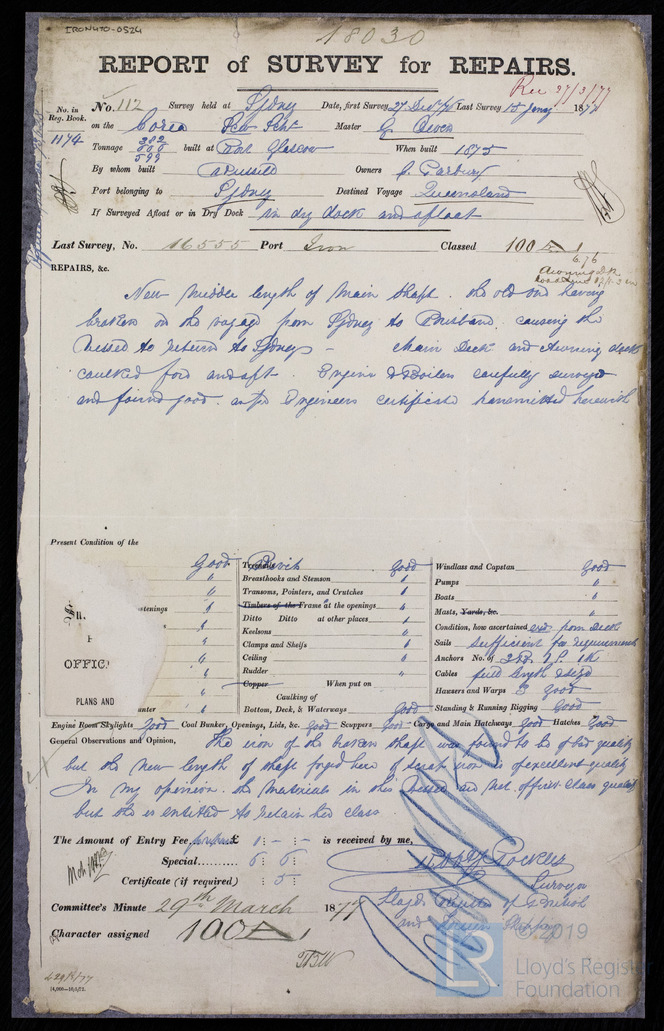 IRON470-0524
18030
REPORT of SURVEY for REPAIRS.
Rec 27/3/77
No. in Reg. Book. No. 112 Survey held at Sydney Date, first Survey 27 Dec 76 Last Survey 15 Jany 1877
1174 on the Corea Scw Schr Master
Tonnage 382 599 built at Port Glasgow When built 1875
By whom built Russell Owners
Port belonging to Sydney Destined Voyage Queensland
If Surveyed Afloat or in Dry Dock in dry dock and afloat
Last Survey, No. 16555 Port Iron Classed 100 A 1
6.76
Awning Dk
REPAIRS, &c.
New middle length of main shaft. the old one having
broken on the voyage from Sydney to Brisbane, causing the
vessel to return to Sydney — Main Deck and Awning deck
caulked fore and aft. Engine & Boilers carefully surveyed
and found good. as per Engineers certificate transmitted herewith
Present Condition of the
Good
Treenails Rivets good
Windlass and Capstan good
Breasthooks and Stemson "
Pumps "
Transoms, Pointers, and Crutches "
Boats "
stenings "
Timbers of the Frame at the openings "
Masts, Yards, &c. "
Ditto Ditto at other places "
Condition, how ascertained from Deck
Keelsons "
Sails sufficient for requirements
Clamps and Shelfs "
Anchors No. of 2B. 1S. 1K
OFFIC
Ceiling "
Cables full length & size
Rudder "
Hawsers and Warps 3 good
Copper When put on
Standing & Running Rigging Good
PLANS AND
Caulking of
unter "
Bottom, Deck, & Waterways Good
Engine Room Skylights good Coal Bunker, Openings, Lids, &c. good Scuppers Good Cargo and Main Hatchways good Hatches Good
General Observations and Opinion, The iron of the broken shaft was found to be of bad quality
but the new length of shaft forged here of scrap iron is of excellent quality
In my opinion the materials in this vessel are not of first class quality
but she is entitled to retain her class.
The Amount of Entry Fee £ 1 : - : - is received by me,
Special.......... 6 : 6 :
Certificate (if required) : 5 :
Surveyor
Lloyd's Register of British
and Foreign Shipping
Committee's Minute 29th March 1877
Character assigned 100 A 1
TBW
14,000—10/5/72.
© 2019
Lloyd's Register
Foundation